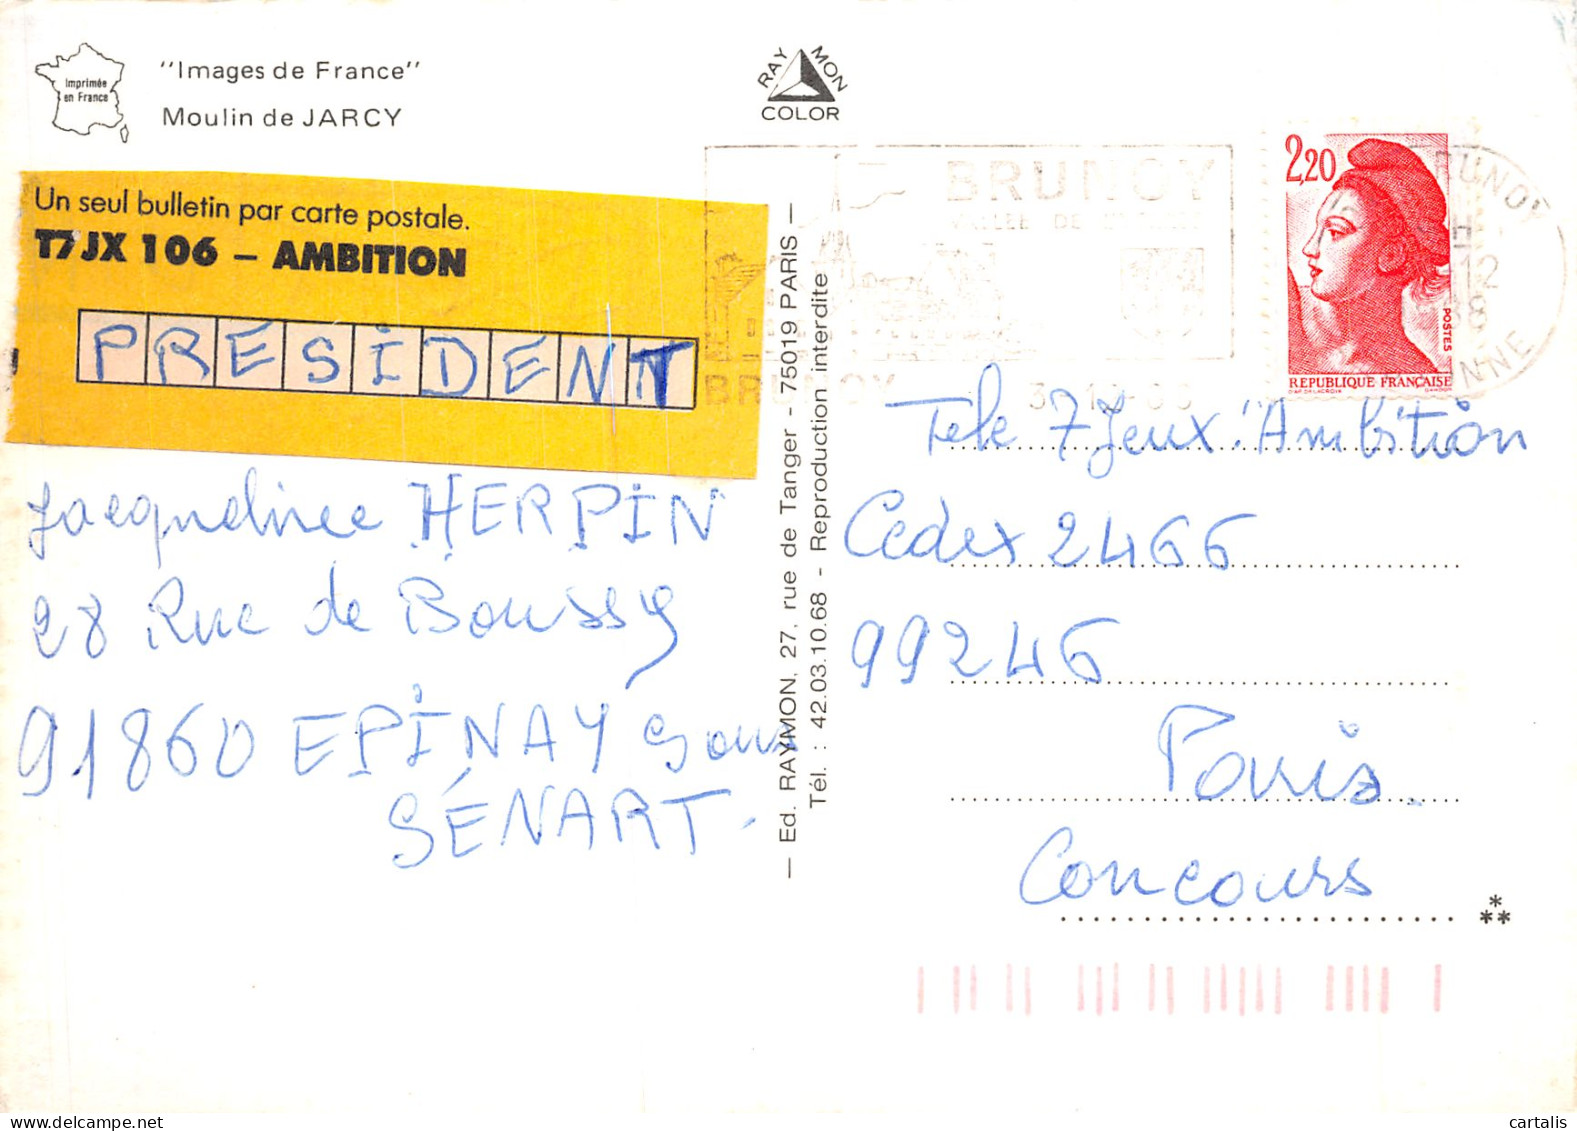 Imprimée
en France
"Images de France"
Moulin de JARCY
RAYMON
COLOR
Un seul bulletin par carte postale.
T7JX 106 – AMBITION
PRESIDENT
Jacqueline HERPIN
28 Rue de Boussy
91860 EPINAY sous
SÉNART.
— Ed. RAYMON, 27, rue de Tanger - 75019 PARIS —
Tél. : 42.03.10.68 - Reproduction interdite
BRUNOY
VALLEE DE
BRUNOY
2,20
POSTES
REPUBLIQUE FRANÇAISE
BRUNOY
H
12
88
Tele 7 Jeux "Ambition
Cedex 2466
99246
Paris.
Concours
cartalis